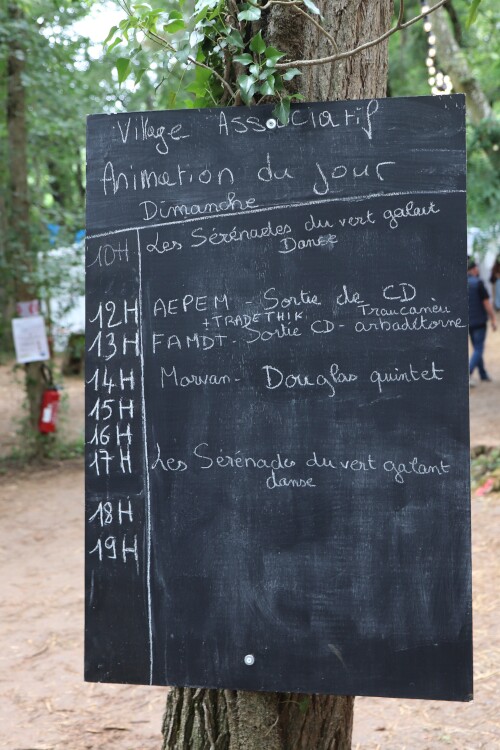 Village Associatif
Animation du jour
Dimanche
10H Les Sérénades du vert galant
Danse
12H AEPEM - Sortie de CD
+TRADETHIK Traucanèu
13H FAMDT - Sortie CD - arbadétorne
14H Marvan - Douglas quintet
15H
16H
17H Les Sérénades du vert galant
danse
18H
19H